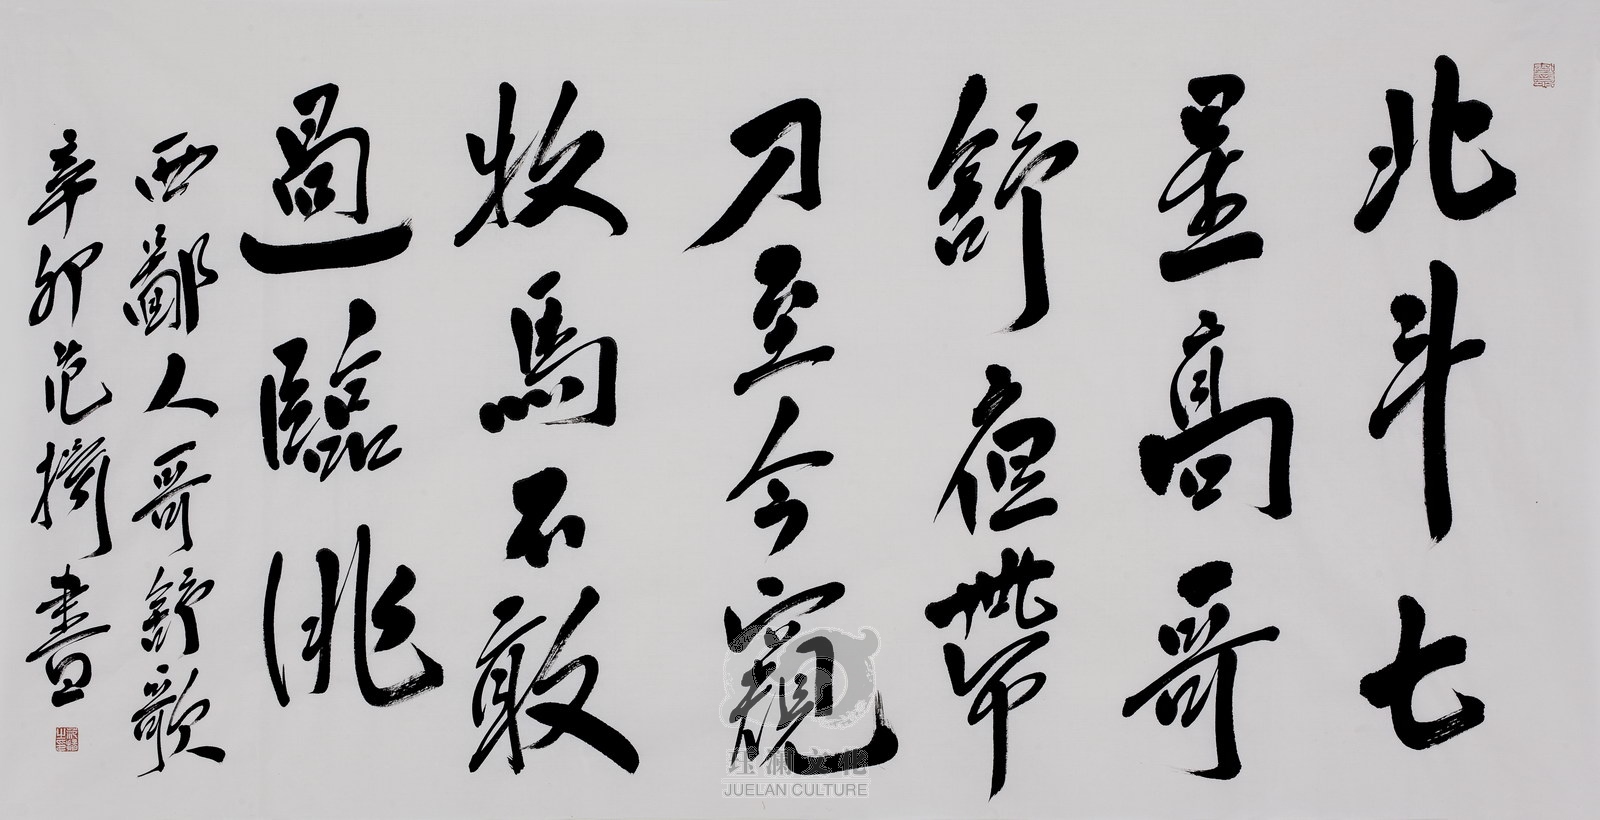 北斗七
星高哥
舒夜帶
刀至今窺
牧馬不敢
過臨洮
西鄙人哥舒歌
辛卯范書
珏澜文化
JUELAN CULTURE